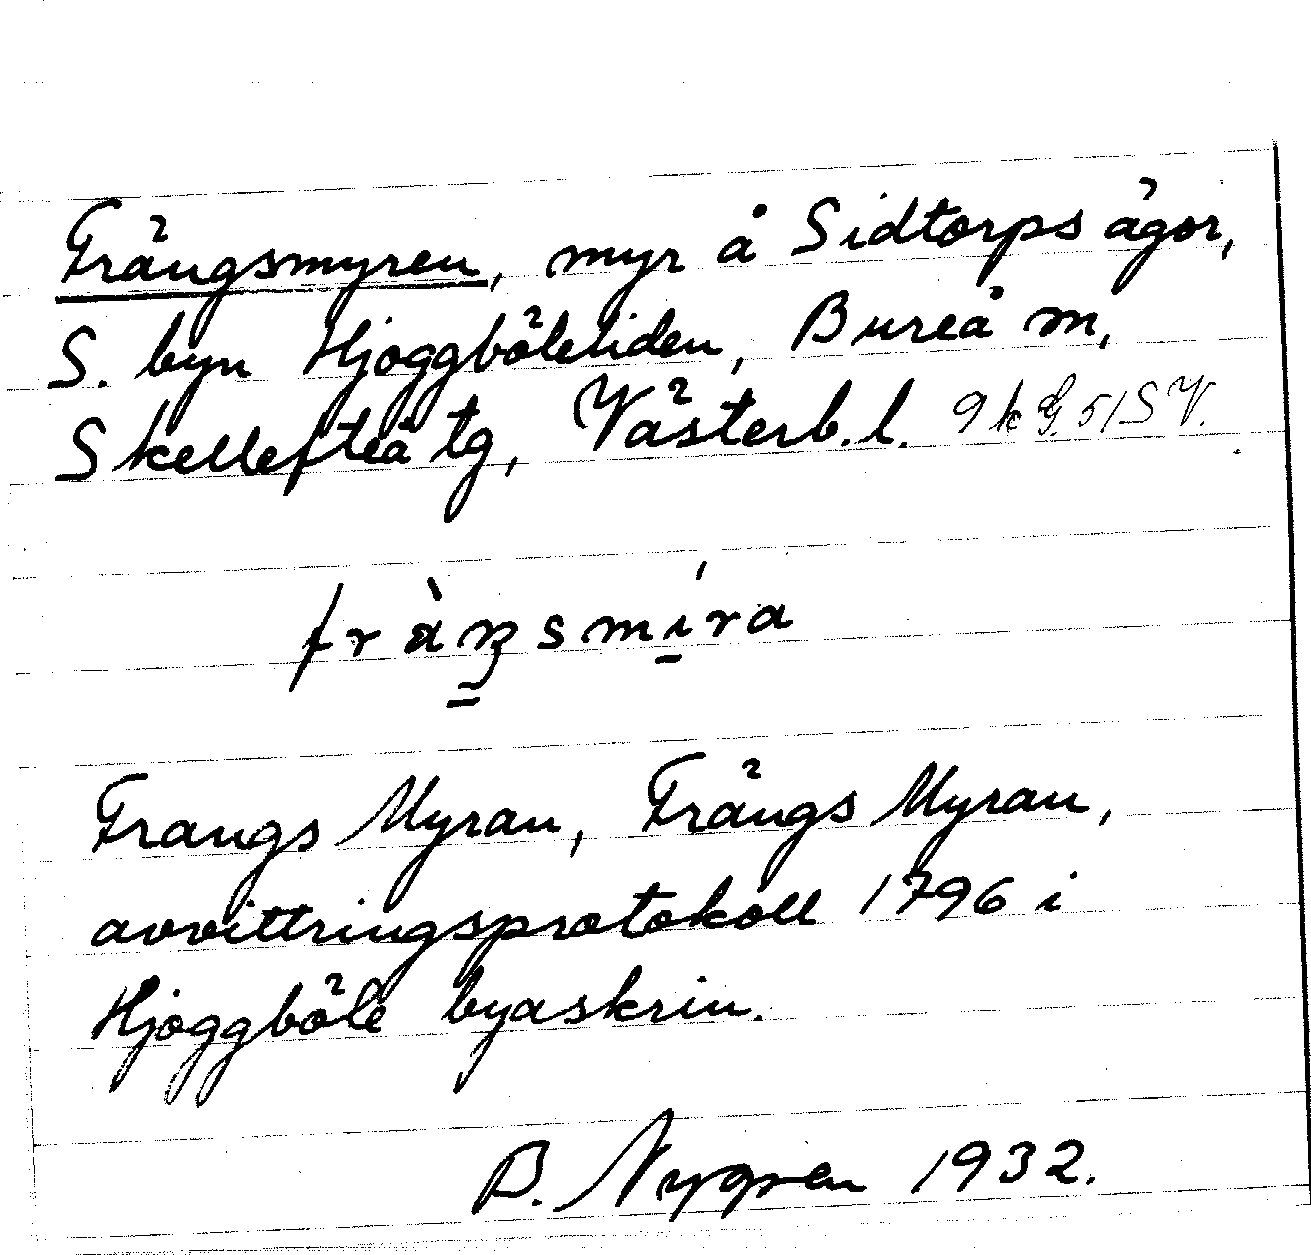 Frängsmyren, myr å Sidtorps ägor,
S. byn Hjoggböleliden, Bureå sn,
Skellefteå tg, Västerb. l. 9 k G. 51 SV.
fràŋsmíra
Frangs Myran, Frängs Myran,
avvittringsprotokoll 1796 i
Hjoggböle byaskrin.
B. Nygren 1932.